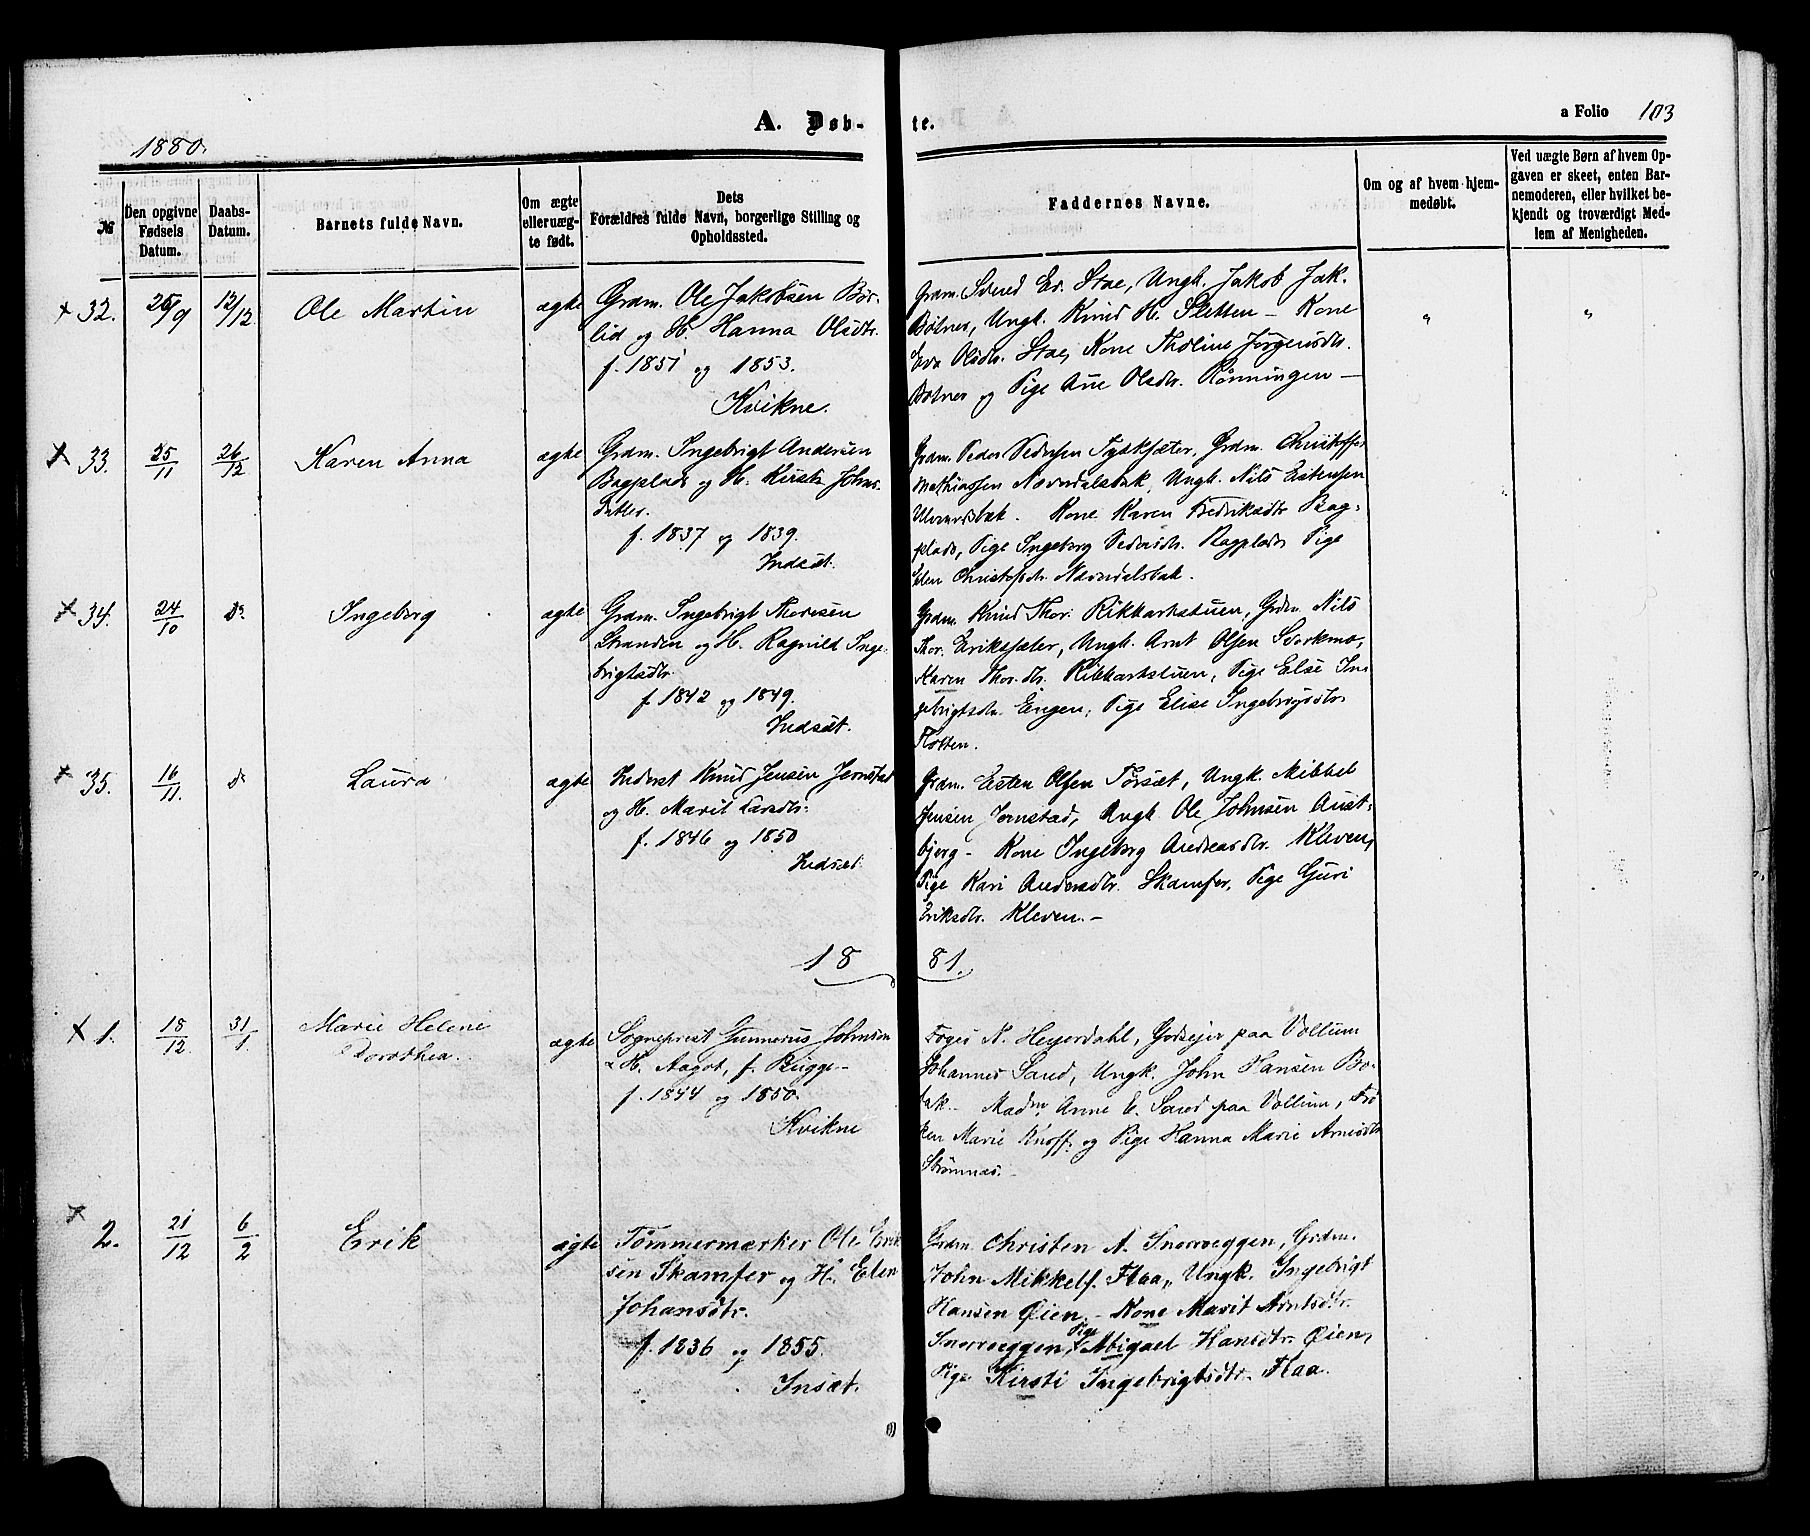 1880.
A. Døb-
te.
a Folio 103
№
Den opgivne
Fødsels
Datum.
Daabs-
Datum.
Barnets fulde Navn.
Om ægte
eller uæg-
te født.
Dets
Forældres fulde Navn, borgerlige Stilling og
Opholdssted.
Faddernes Navne.
Om og af hvem hjem-
medøbt.
Ved uægte Børn af hvem Op-
gaven er skeet, enten Bar-
nemoderen, eller hvilket be-
kjendt og troværdigt Med-
lem af Menigheden.
32. 26/9 12/12 Ole Martin ægte
Grdm. Ole Jakobsen Bør-
lid og H. Hanna Olsdtr.
f. 1851 og 1853.
Kvikne.
Grdm. Svend Er. Stae, Ungk. Jakob Jak.
Botner, Ungk. Knud H. Sletten - Kone
Eva Olsdtr. Stae, Kone Tholine Jørgensdtr.
Botner og Pige Ane Olsdtr. Rønningen -
" "
33. 25/11 26/12 Karen Anna ægte
Grdm. Ingebrigt Andersen
Bagplads og H. Kirsti Johns-
datter.
f. 1837 og 1839.
Indset.
Grdm. Peder Pedersen Tyskfæter, Grdm. Christoffer
Mathiassen Næverdalsbak, Ungk. Nils Estensen
Kone Karen Fredriksdtr. Bag-
plads, Pige Ingeborg Pedersdtr. Bagplads Pige
Elen Christofsdtr. Næverdalsbak.
34. 24/10 Do Ingeborg ægte
Grdm. Ingebrigt Thoresen
Stranden og H. Ragnild Inge-
brigtsdtr.
f. 1842 og 1849.
Indset.
Grdm. Knud Thor. Rikkarkstuen, Grdm. Nils
Thor. Eriksfæter, Ungk. Arnt Olsen Storkmo,
Karen Thor.dtr. Rikkarkstuen, Pige Else In-
gebrigtsdtr. Engen, Pige Elise Ingebrigtsdtr.
Flotten.
35. 16/11. Do Laura ægte
Inderst Knud Jensen Jernstad
og H. Marit Larsdtr.
f. 1846 og 1850
Indset.
Grdm. Esten Olsen Torset, Ungk. Mikkel
Jensen Jernstad, Ungk. Ole Johnsen Aust-
bjerg - Kone Ingeborg Andreasdtr. Kleven,
Pige Kari Andersdtr. Skamfer, Pige Guri
Eriksdtr. Kleven. -
18 81.
1. 18/12 31/1 Marie Helene
Dorothea. ægte
Sogneprest Gunnerus Johnson
& H. Aagot, f. Rügge -
f. 1844 og 1850.
Kvikne
Foged N. Heyerdahl, Godsejer paa Vollum
Johannes Sand, Ungk. John Hansen Bo-
bak. Madm. Anne E. Sand paa Vollum, Frø-
ken Marie Knoff og Pige Hanna Marie Arnesdtr.
Strømnæs.
2. 21/12 6/2 Erik ægte
Tømmermærker Ole Erik
sen Skamfer og H. Elen
Johansdtr.
f. 1836 og 1855.
Insæt.
Grdm Christen A. Snorroeggen, Grdm.
John Mikkels. Flaa, Ungk. Ingebrigt
Hansen Øien, - Kone Marit Arntsdtr.
Snorroeggen, Pige Abigael Hansdtr. Øien,
Pige Kirsti Ingebrigtsdtr. Flaa.